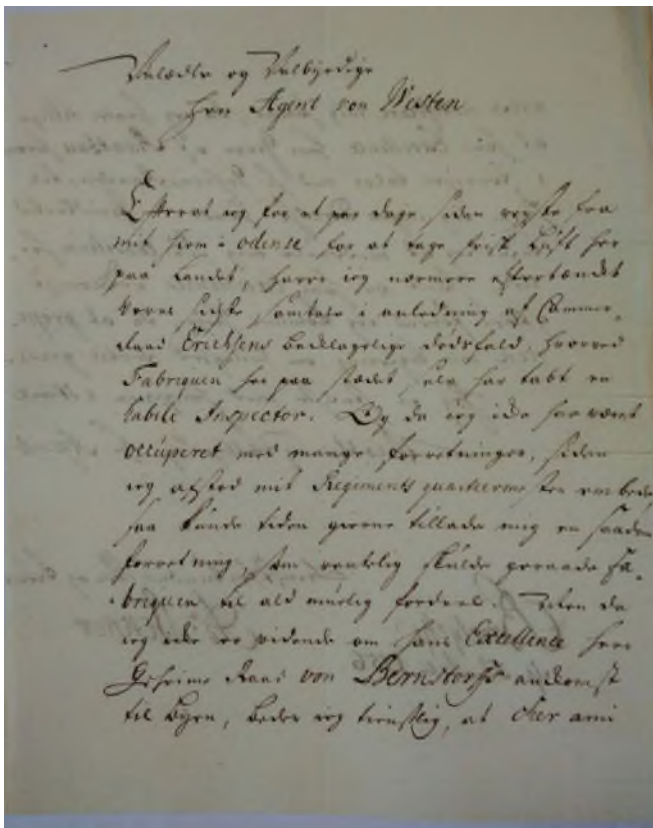 Velædle og Velbyrdige
Herr Agent von Westen
Efterat jeg for et par dage siden reyste fra
mit hiem i odense for at tage frisk luft her
paa Landet, harer jeg nærmere eftertænckt
vores sidste samtale i anledning af Cammer-
Raad Erichsens beklagelige dødsfald, hvorved
Fabriquen her paa stædet selv har tabt en
habile Inspector. Og da jeg icke har været
occuperet med mange forretninger, siden
jeg afstod mit Regiments quarteermester embede
saa kunde tiden gierne tillade mig en saadan
forretning, som ventelig skulde geraade Fa-
briquen til ald muelig fordeel. Men da
jeg icke er vidende om hans Excellence herr
Geheime Raad von Bernstorffs ankomst
til byen, beder jeg tienstlig, at cher ami